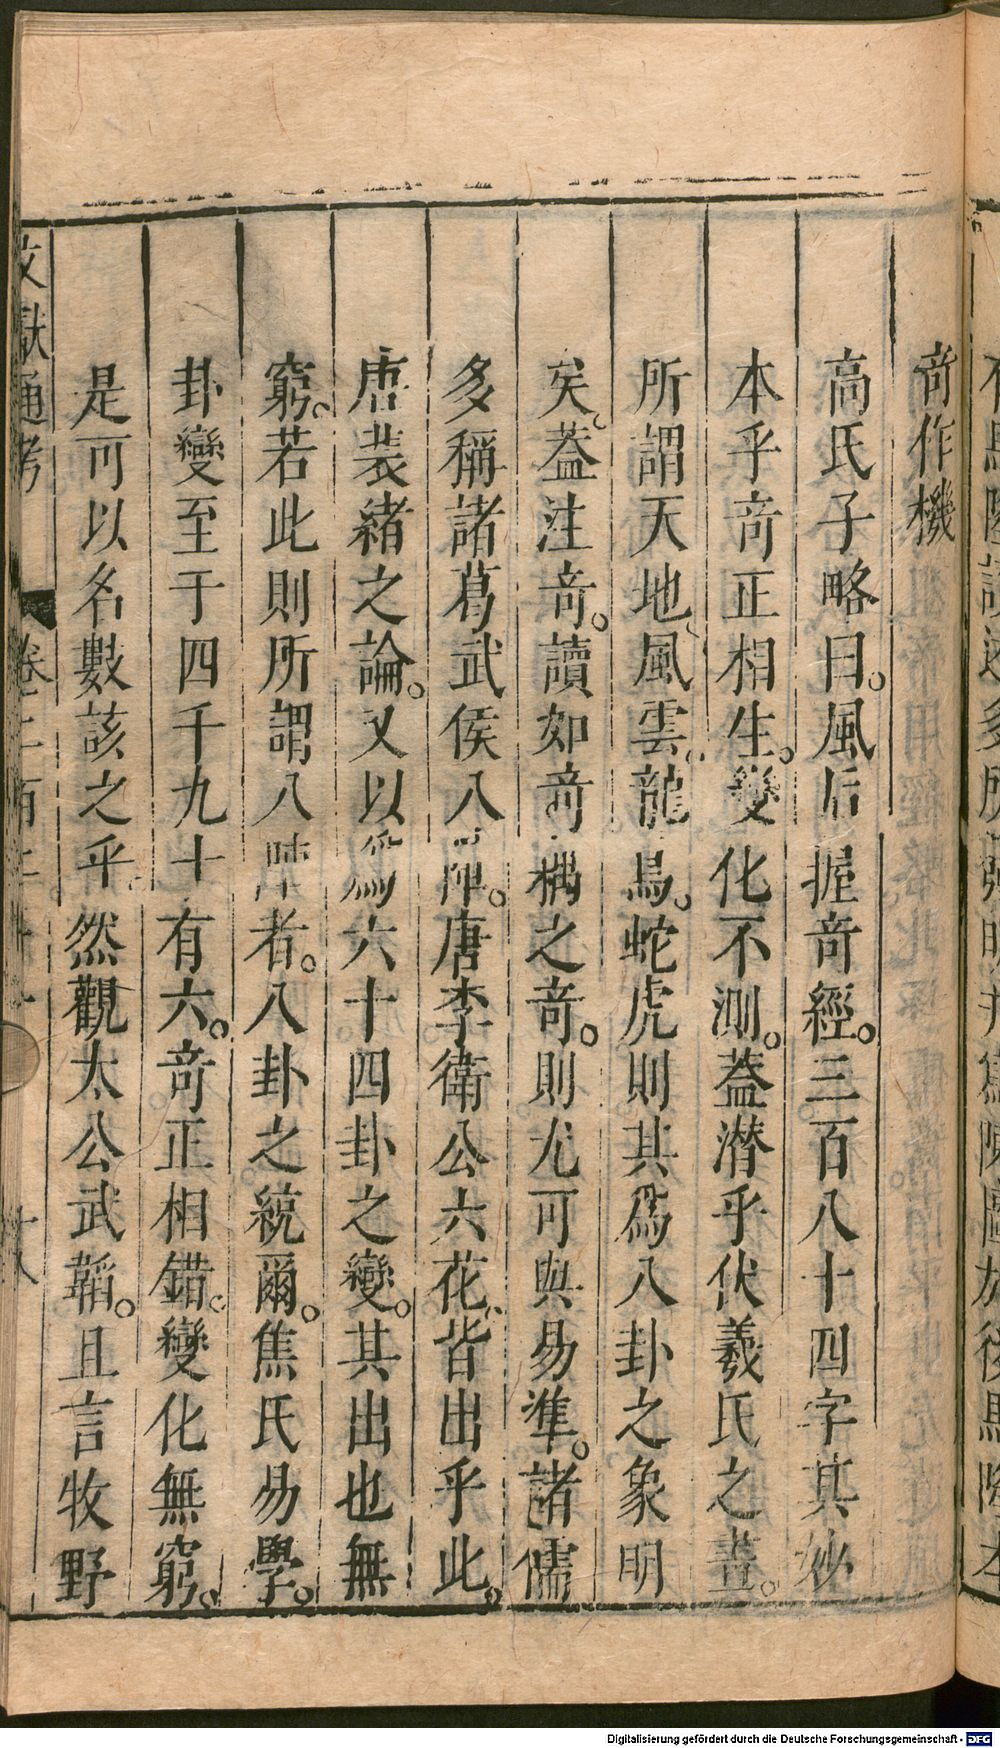 竒作機
高氏子略曰。風后握竒經。三百八十四字其妙
本乎竒正相生。變化不測。葢潜乎伏羲氏之畫。
所謂天地、風雲、龍鳥。蛇虎則其為八卦之象明
矣、葢注竒。讀如竒耦之竒。則尤可與易準。諸儒
多稱諸葛武侯八陣。唐李衛公六花、皆出乎此。
唐裴緒之論。又以為六十四卦之變。其出也無
窮。若此則所謂八陣者。八卦之統爾。焦氏易學。
卦變至于四千九十有六。竒正相錯。變化無窮。
是可以名數該之乎、然觀太公武韜。且言牧野
文獻通考
卷二百二十一
十八
Digitalisierung gefördert durch die Deutsche Forschungsgemeinschaft - DFG